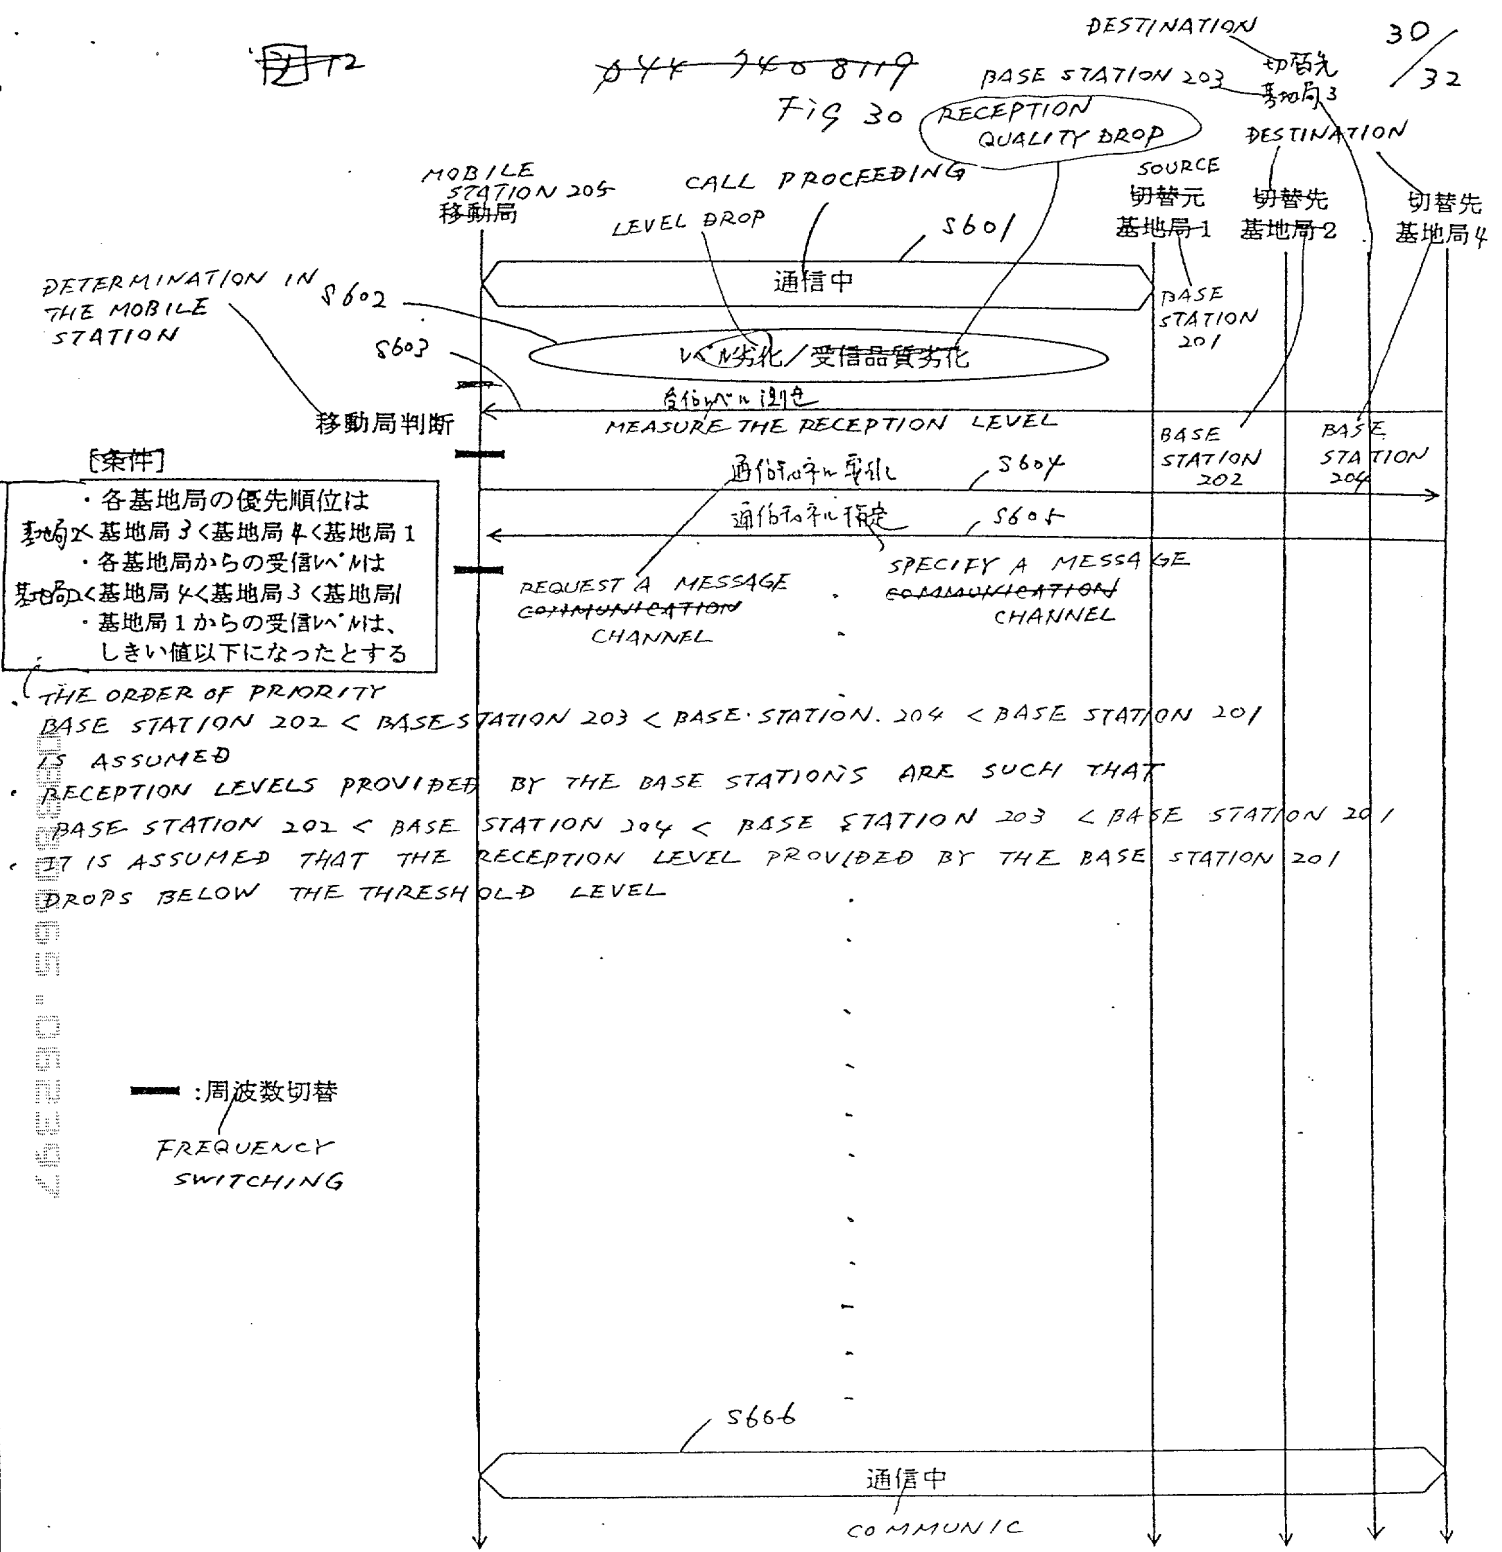 図12
044 740 8119
Fig 30
30/32
DESTINATION
切替先
BASE STATION 203
基地局3
RECEPTION
QUALITY DROP
DESTINATION
MOBILE
STATION 205
移動局
CALL PROCEEDING
LEVEL DROP
S601
SOURCE
切替元
基地局1
切替先
基地局2
切替先
基地局4
通信中
DETERMINATION IN
THE MOBILE
STATION
S602
BASE
STATION
201
S603
レベル劣化/受信品質劣化
受信レベル測定
移動局判断
MEASURE THE RECEPTION LEVEL
BASE
STATION
202
BASE
STATION
204
[条件]
通信チャネル要求
S604
・各基地局の優先順位は
基地局2<基地局3<基地局4<基地局1
・各基地局からの受信レベルは
基地局2<基地局4<基地局3<基地局1
・基地局1からの受信レベルは、
しきい値以下になったとする
通信チャネル指定
S605
REQUEST A MESSAGE
COMMUNICATION
CHANNEL
SPECIFY A MESSAGE
COMMUNICATION
CHANNEL
・THE ORDER OF PRIORITY
BASE STATION 202 < BASE STATION 203 < BASE STATION 204 < BASE STATION 201
IS ASSUMED
・RECEPTION LEVELS PROVIDED BY THE BASE STATIONS ARE SUCH THAT
BASE STATION 202 < BASE STATION 204 < BASE STATION 203 < BASE STATION 201
・IT IS ASSUMED THAT THE RECEPTION LEVEL PROVIDED BY THE BASE STATION 201
DROPS BELOW THE THRESHOLD LEVEL
:周波数切替
FREQUENCY
SWITCHING
S606
通信中
COMMUNIC